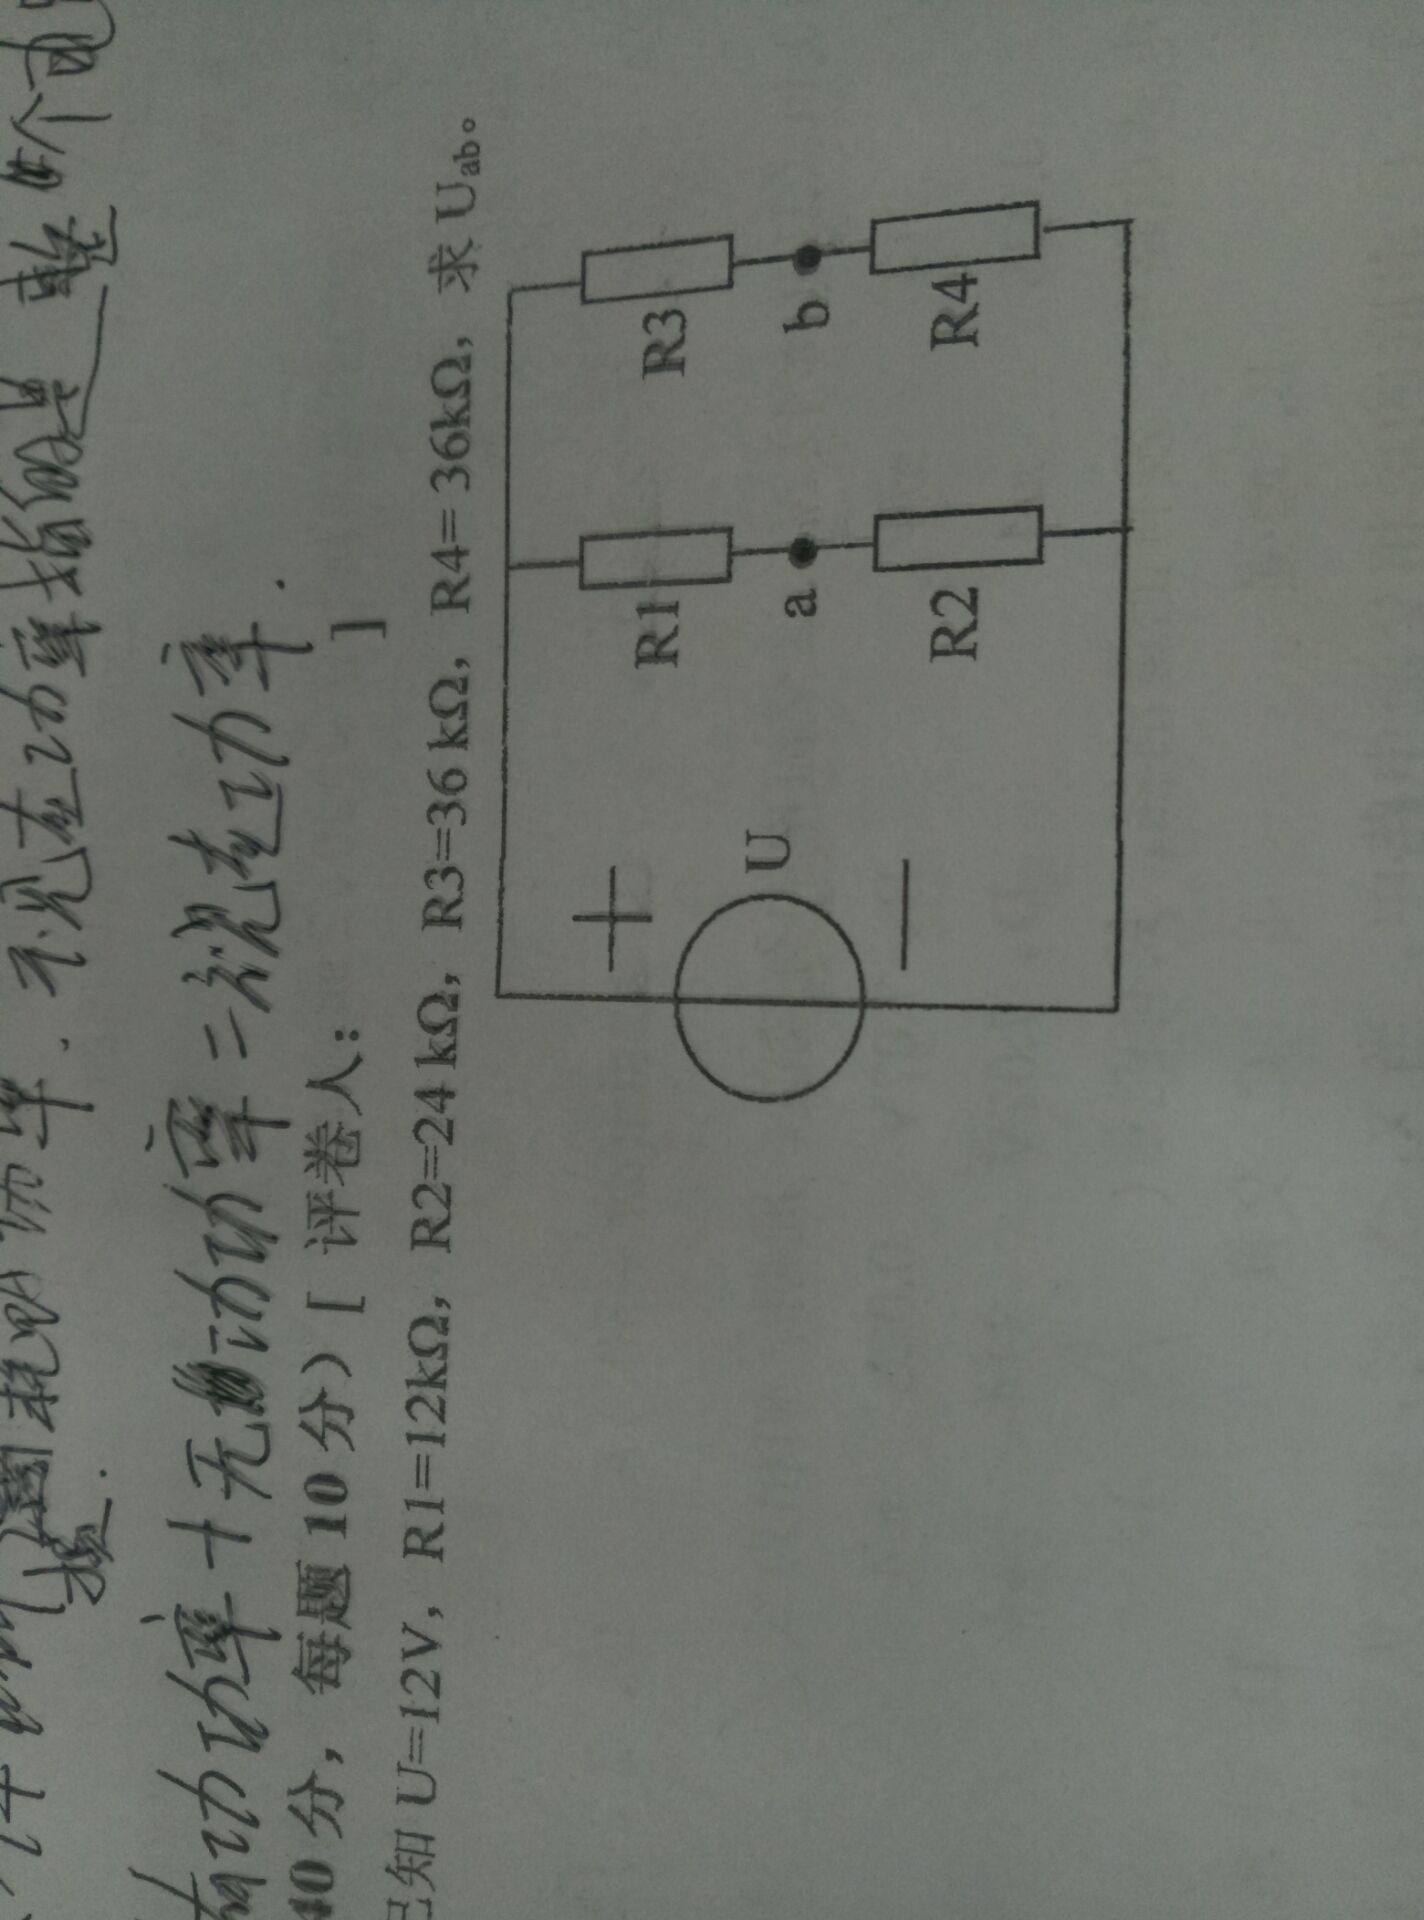 无功功率指的是整个电
有功功率+无功功率=视在功率.
40分，每题10分）[ 评卷人： ]
已知U=12V，R1=12kΩ，R2=24kΩ，R3=36 kΩ，R4=36kΩ，求Uab。
+
U
—
R1
a
R2
R3
b
R4